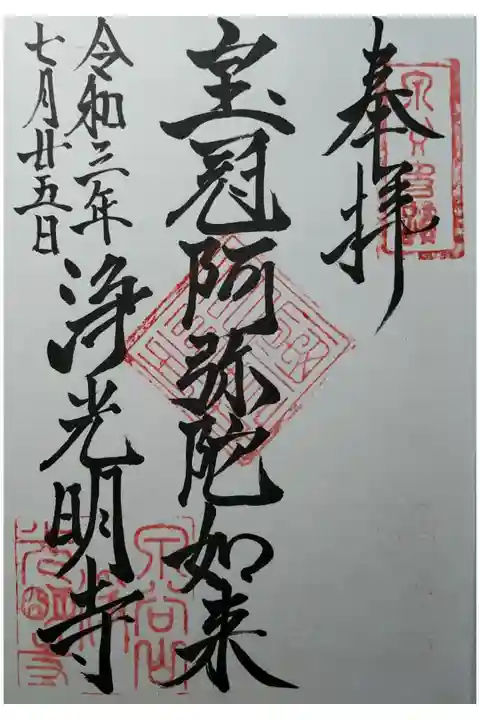 奉拝
宝冠阿弥陀如来
令和三年
七月廿五日
浄光明寺